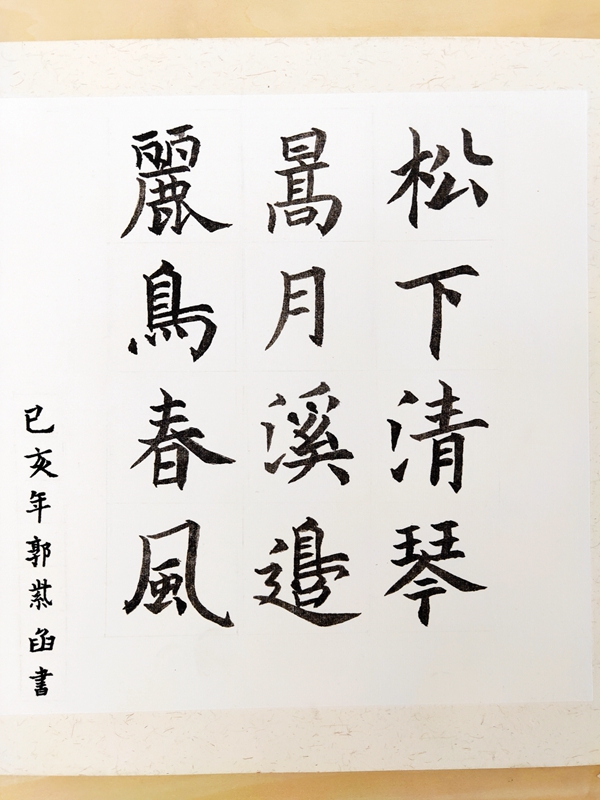 松下清琴
暠月溪邊
麗鳥春風
己亥年郭紫函書